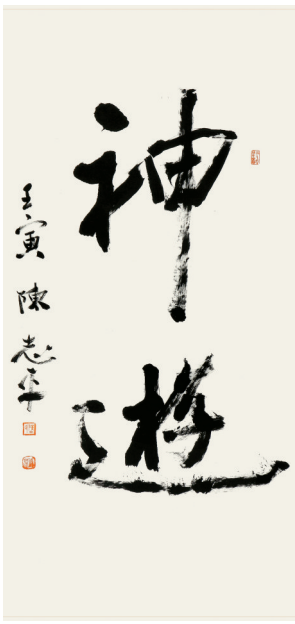 神遊
壬寅 陳志平